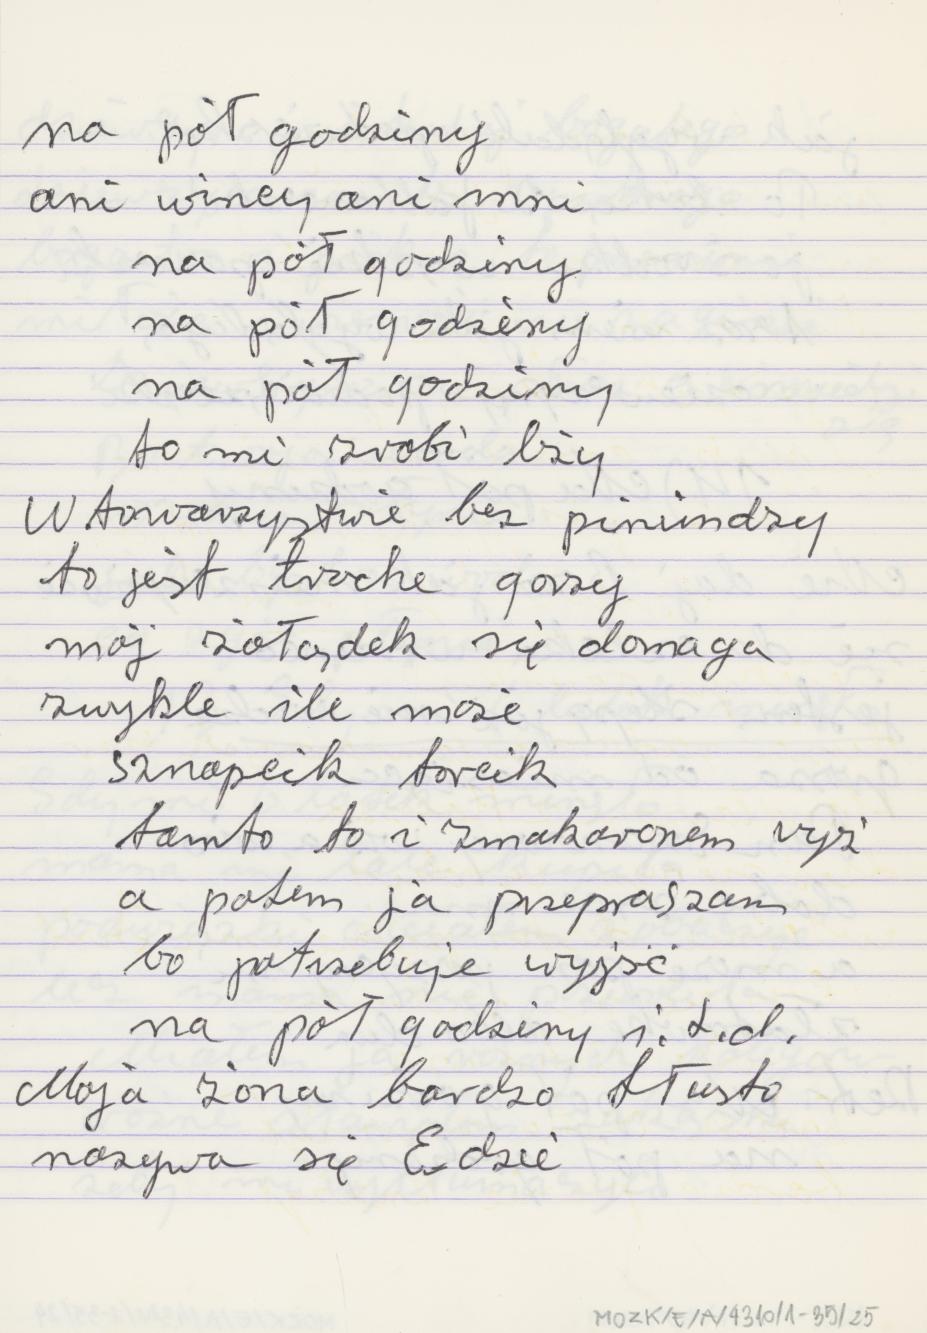 na pół godziny
ani wincy ani mni
na pół godziny
na pół godziny
na pół godziny
to mi zrobi lży
W towarzystwie bez pinindzy
to jest troche gorzy
mój żołądek się domaga
zwykle ile może
sznapcik torcik
tamto to i zmakaronem ryż
a potem ja przepraszam
bo potrzebuje wyjść
na pół godziny i.t.d.
Moja żona bardzo tłusto
nazywa się Edzie
MOZK/E/A/4310/1-35/25